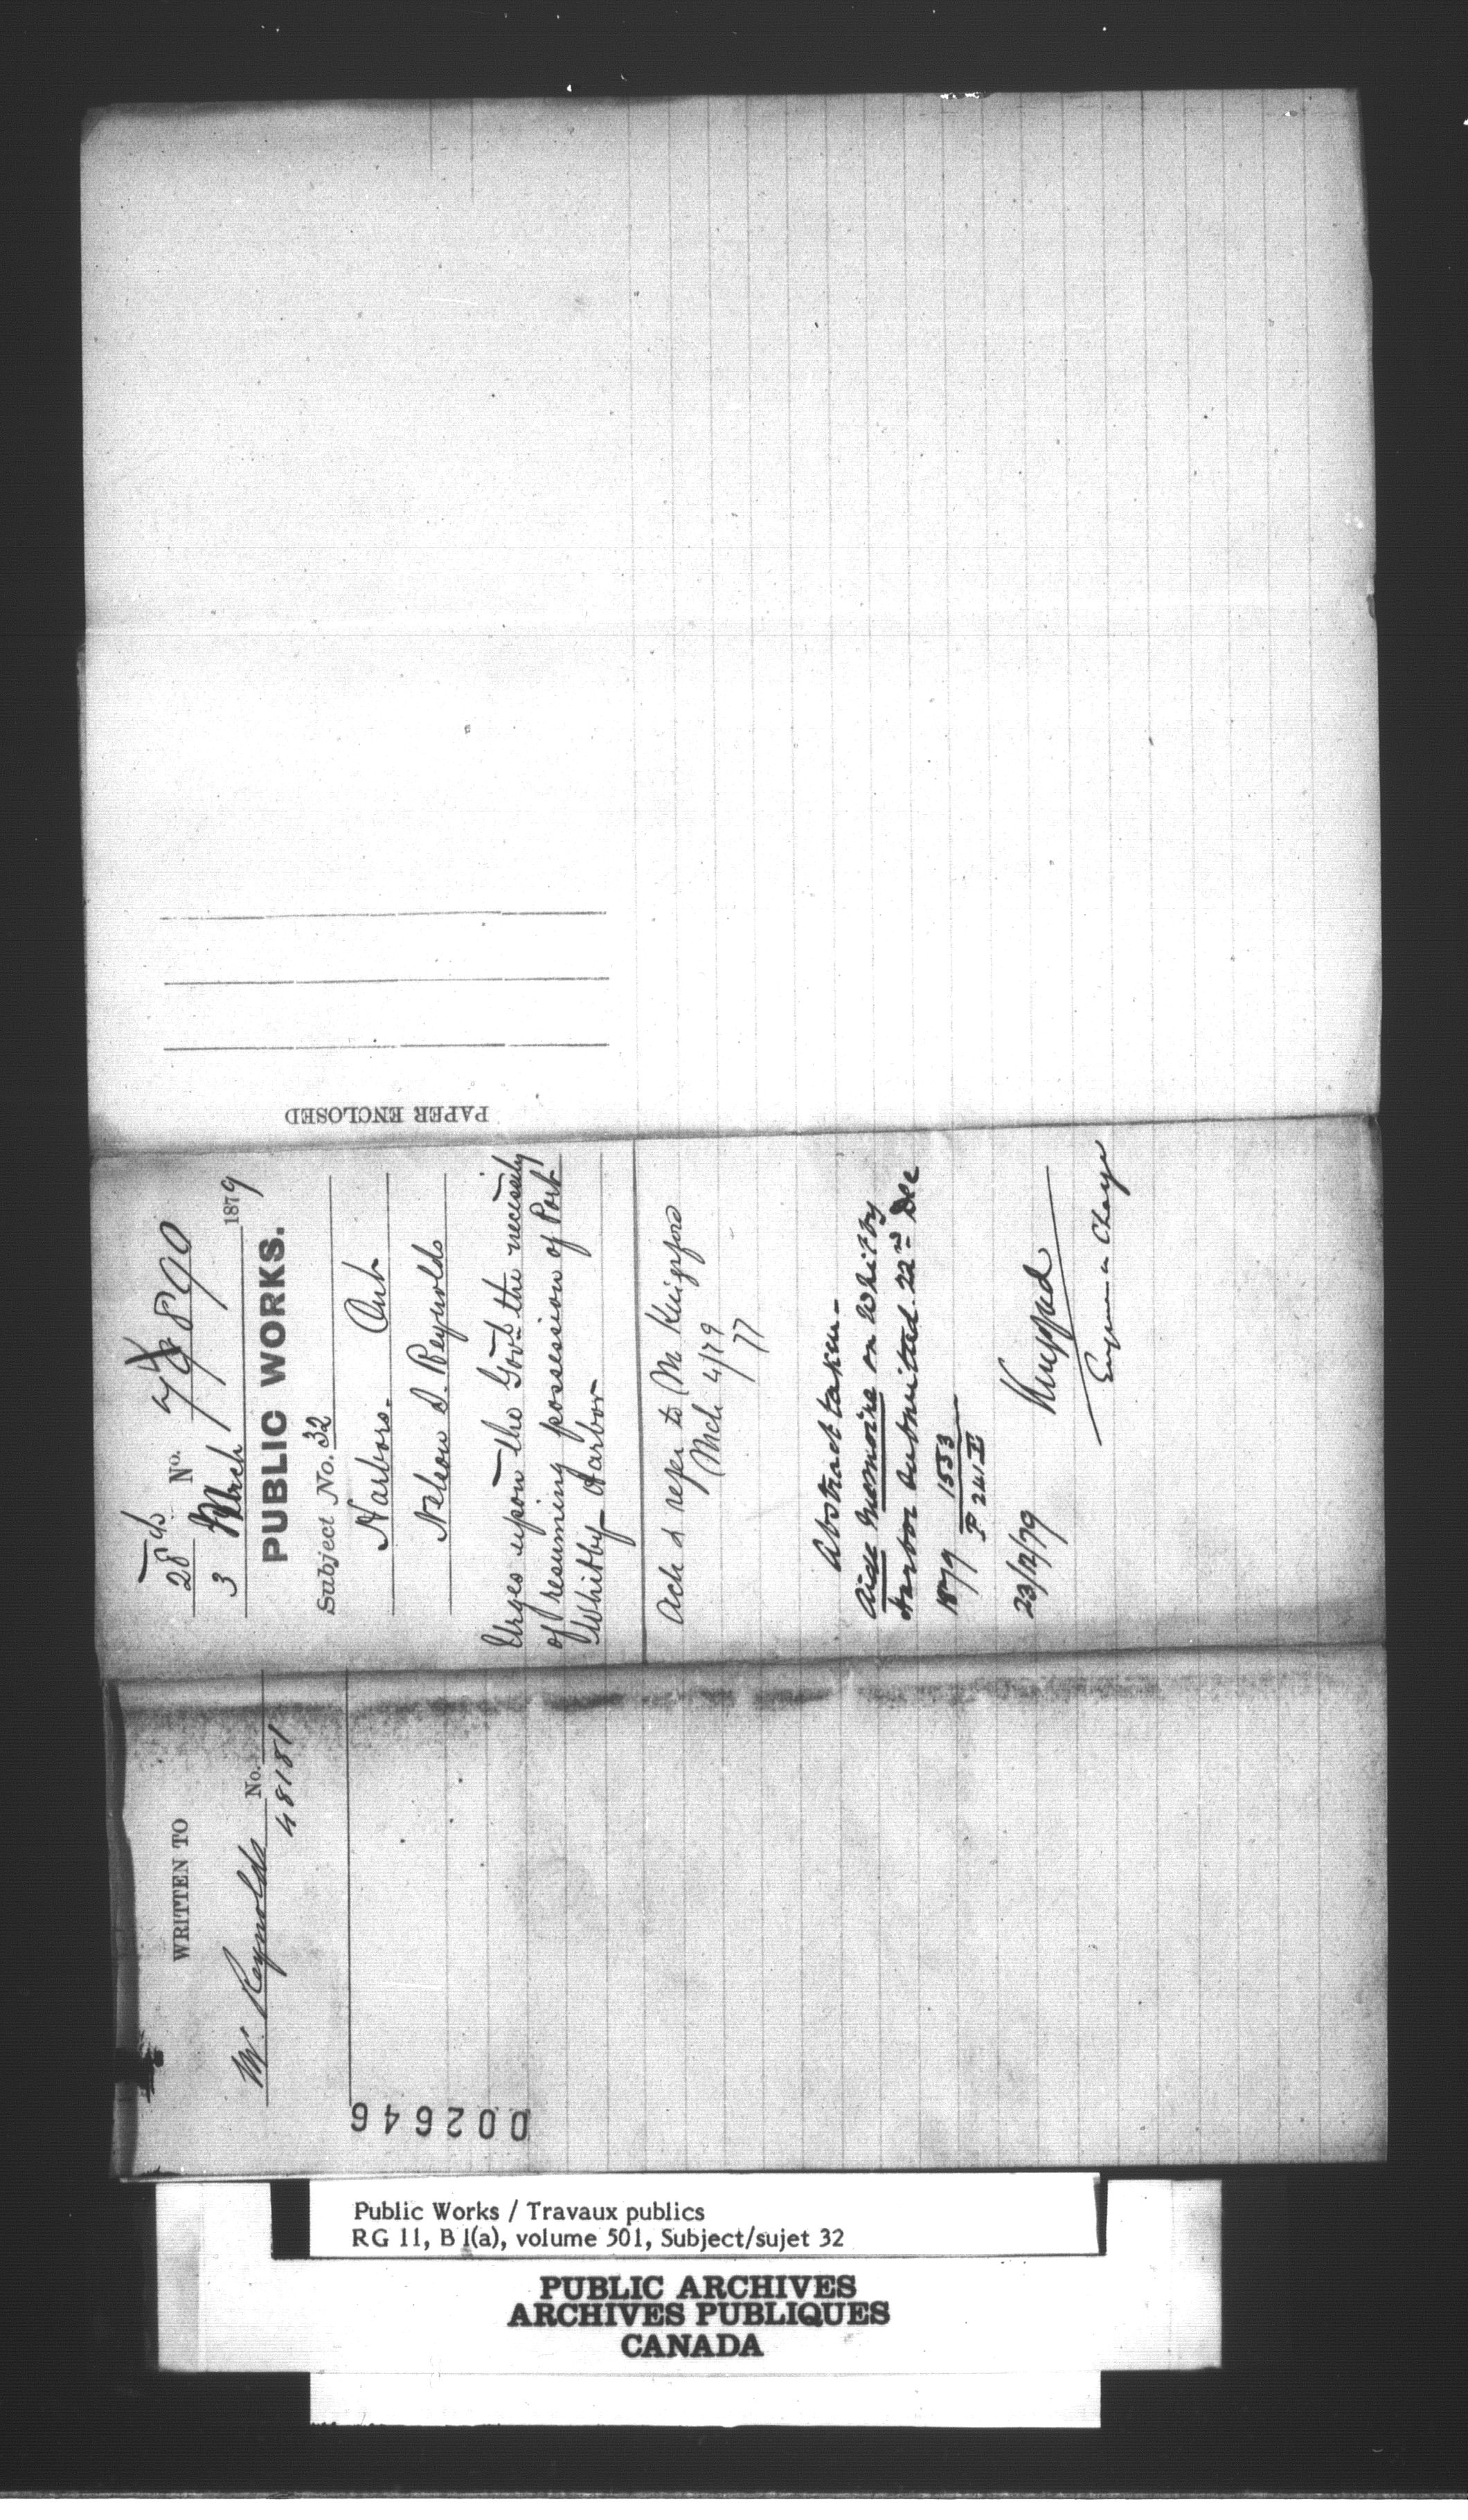 28 Feb No. 78890
3 March 1879
PUBLIC WORKS.
Subject No. 32
Harbors. Ont
Nelson G. Reynolds
Urges upon the Govt. the necessity
of resuming possession of Port
Whitby Harbor
Ack & refer to Mr Kingsford
Mch 4/79
Abstract taken—
Aide Memoire on Whitby
Harbor submitted 22nd Dec
1879 1553
23/12/79
Kingsford
Engineer in Charge
PAPER ENCLOSED
WRITTEN TO
Mr. Reynolds No.
48181
002646
Public Works / Travaux publics
RG 11, B 1(a), volume 501, Subject/sujet 32
PUBLIC ARCHIVES
ARCHIVES PUBLIQUES
CANADA